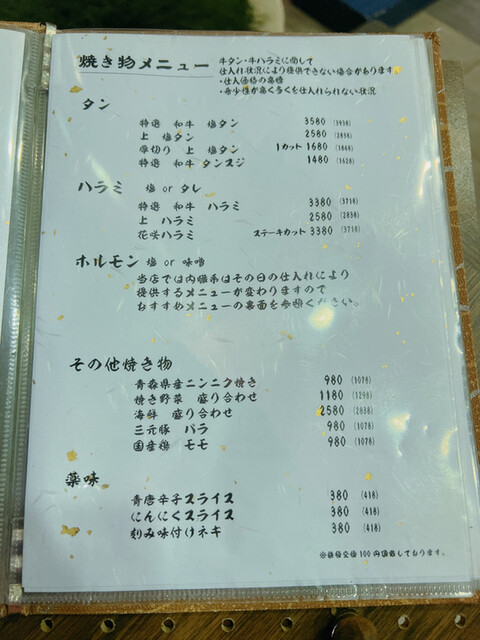 焼き物メニュー
牛タン・牛ハラミに関して
仕入れ状況により提供できない場合があります。
・仕入価格の高騰
・希少性が高く多くを仕入れられない状況
タン
特選 和牛 塩タン 3580 (3938)
上 塩タン 2580 (2838)
厚切り 上 塩タン 1カット 1680 (1848)
特選 和牛 タンスジ 1480 (1628)
ハラミ 塩 or タレ
特選 和牛 ハラミ 3380 (3718)
上 ハラミ 2580 (2838)
花咲ハラミ ステーキカット 3380 (3718)
ホルモン 塩 or 味噌
当店では内臓系はその日の仕入れにより
提供するメニューが変わりますので
おすすめメニューの裏面を参照ください。
その他焼き物
青森県産ニンニク焼き 980 (1078)
焼き野菜 盛り合わせ 1180 (1298)
海鮮 盛り合わせ 2580 (2838)
三元豚 バラ 980 (1078)
国産鶏 モモ 980 (1078)
薬味
青唐辛子スライス 380 (418)
にんにくスライス 380 (418)
刻み味付けネギ 380 (418)
100円頂戴しております。